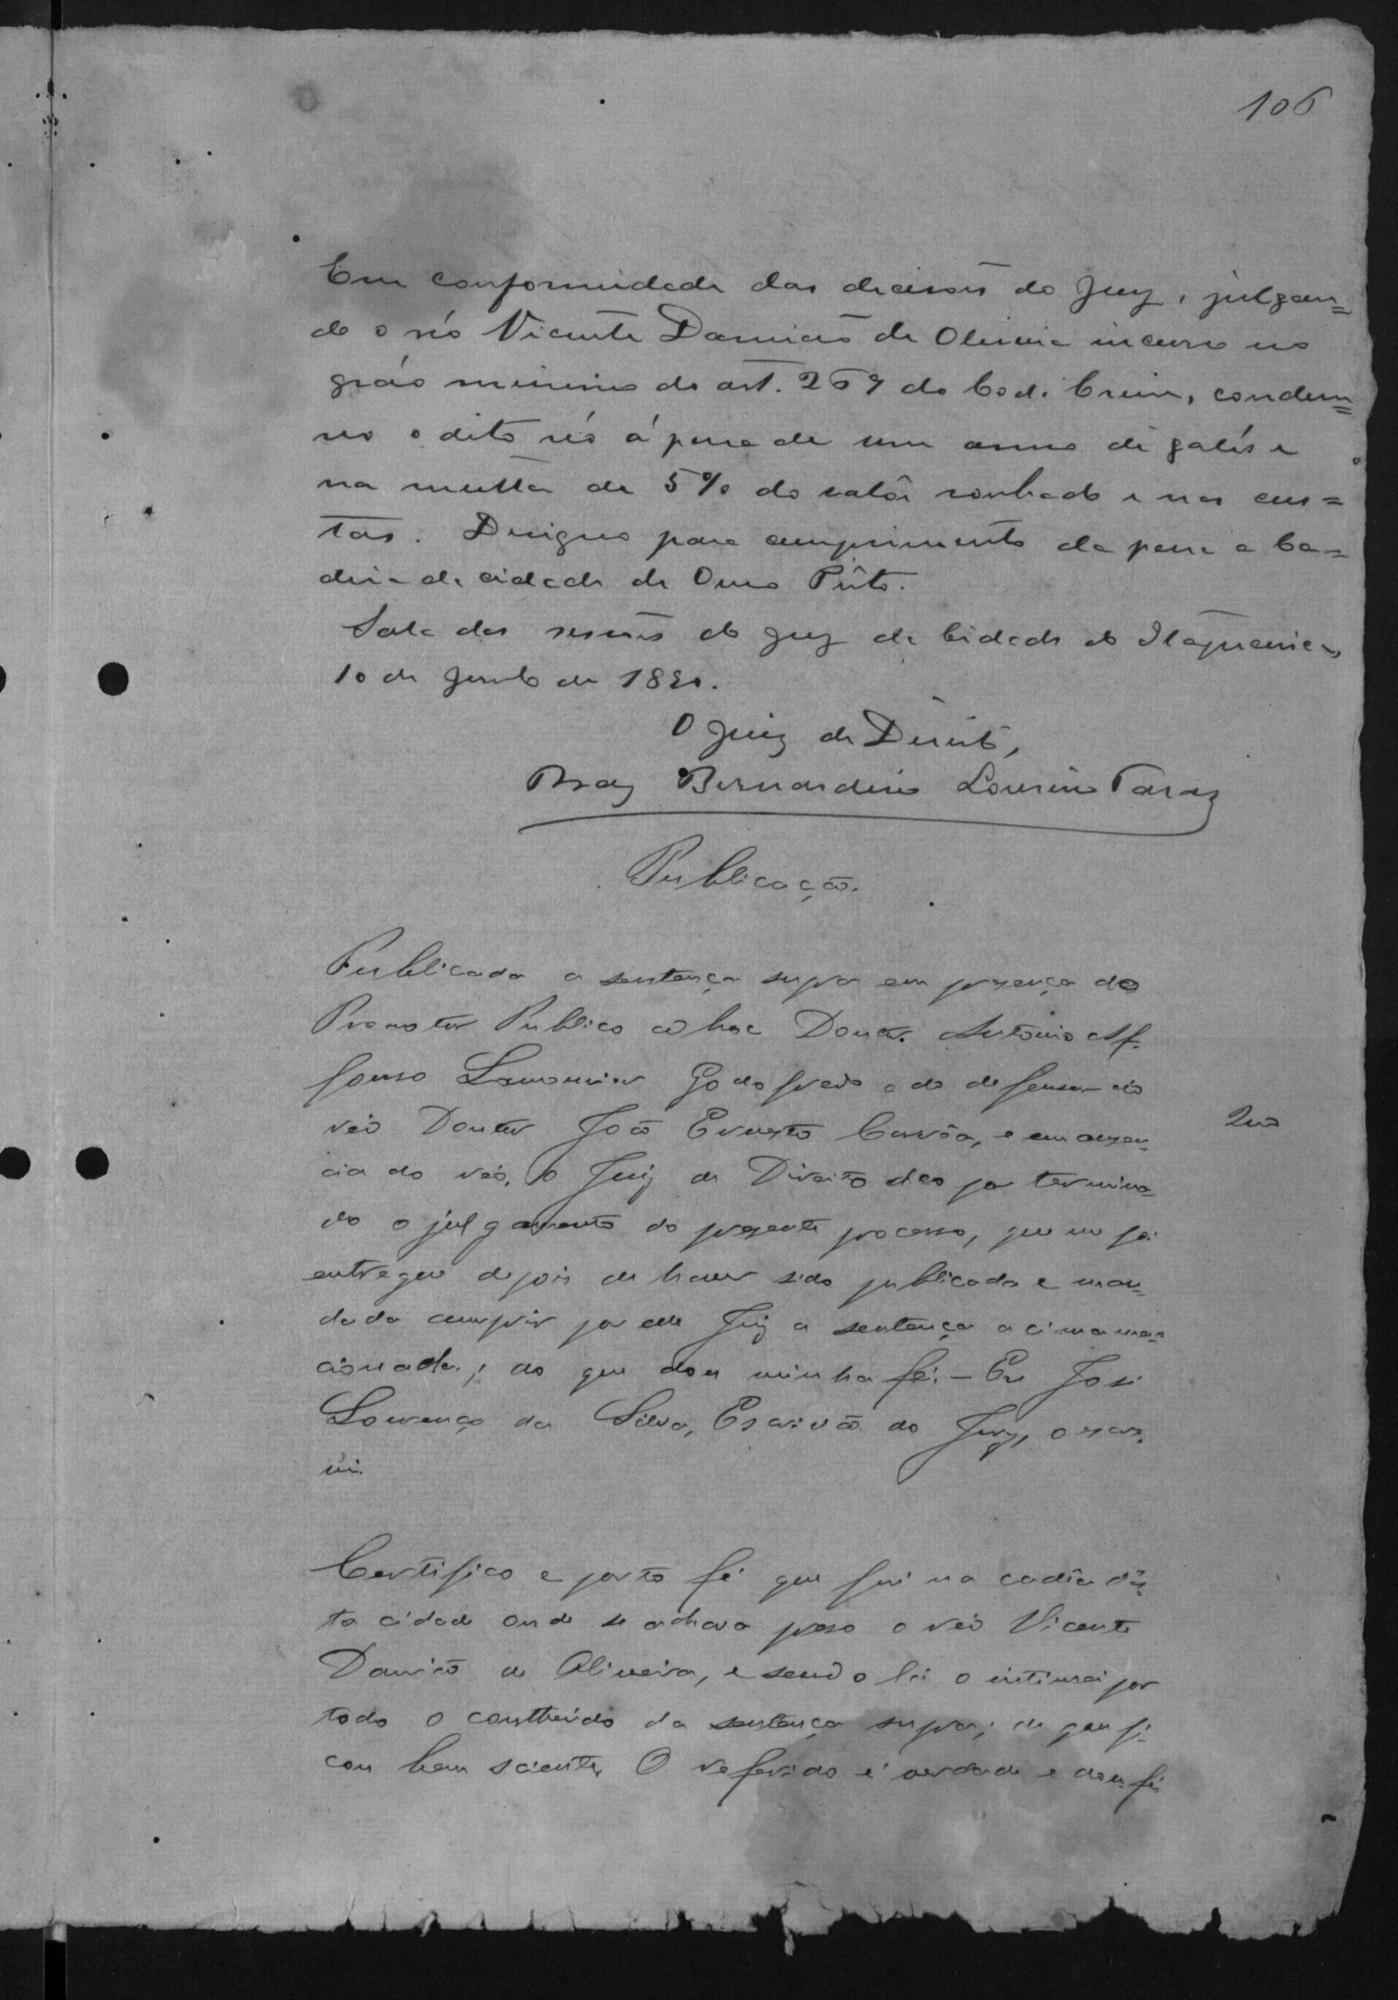 106
Em conformidade das decisões do Jury, julgan=
do o réo Vicente Damião de Oliveira incurso no
gráo minimo do art. 269 do Cod. Crim., condem=
no o dito réo á pena de um anno de galés e
na multa de 5% do valôr roubado e nas cus=
tas. Designo para cumprimento da pena a Ca=
deia da cidade de Ouro Prêto.
Sala das sessões do Jury da Cidade de
10 de Junho de
O Juiz de Direito,
Braz Bernardino Loureiro Tavares
Publicação.
Publicada a sentença supra em presença do
Promotor Publico ad hoc Doutor Antonio Af-
fonso Lamounier Godofredo e do defensor do
réo Doutor João Ernesto Corrêa, e em auzen-
cia do réo, o Juiz de Direito deo por termina-
do o julgamento do prezente processo, que me foi
entregue depois de haver sido publicada e man-
dada cumprir por elle Juiz a sentença acima men-
cionada; do que dou minha fé. — Eu José
Lourenço da Silva, Escrivão do Jury, o escre-
vi.
Certifico e porto fé que fui na cadêa dés-
ta cidade onde se achava prezo o réo Vicente
Damião de Oliveira, e sendo lá o intimei por
todo o conthéudo da sentença supra; de que fi-
cou bem sciente, O referido é verdade e dou fé